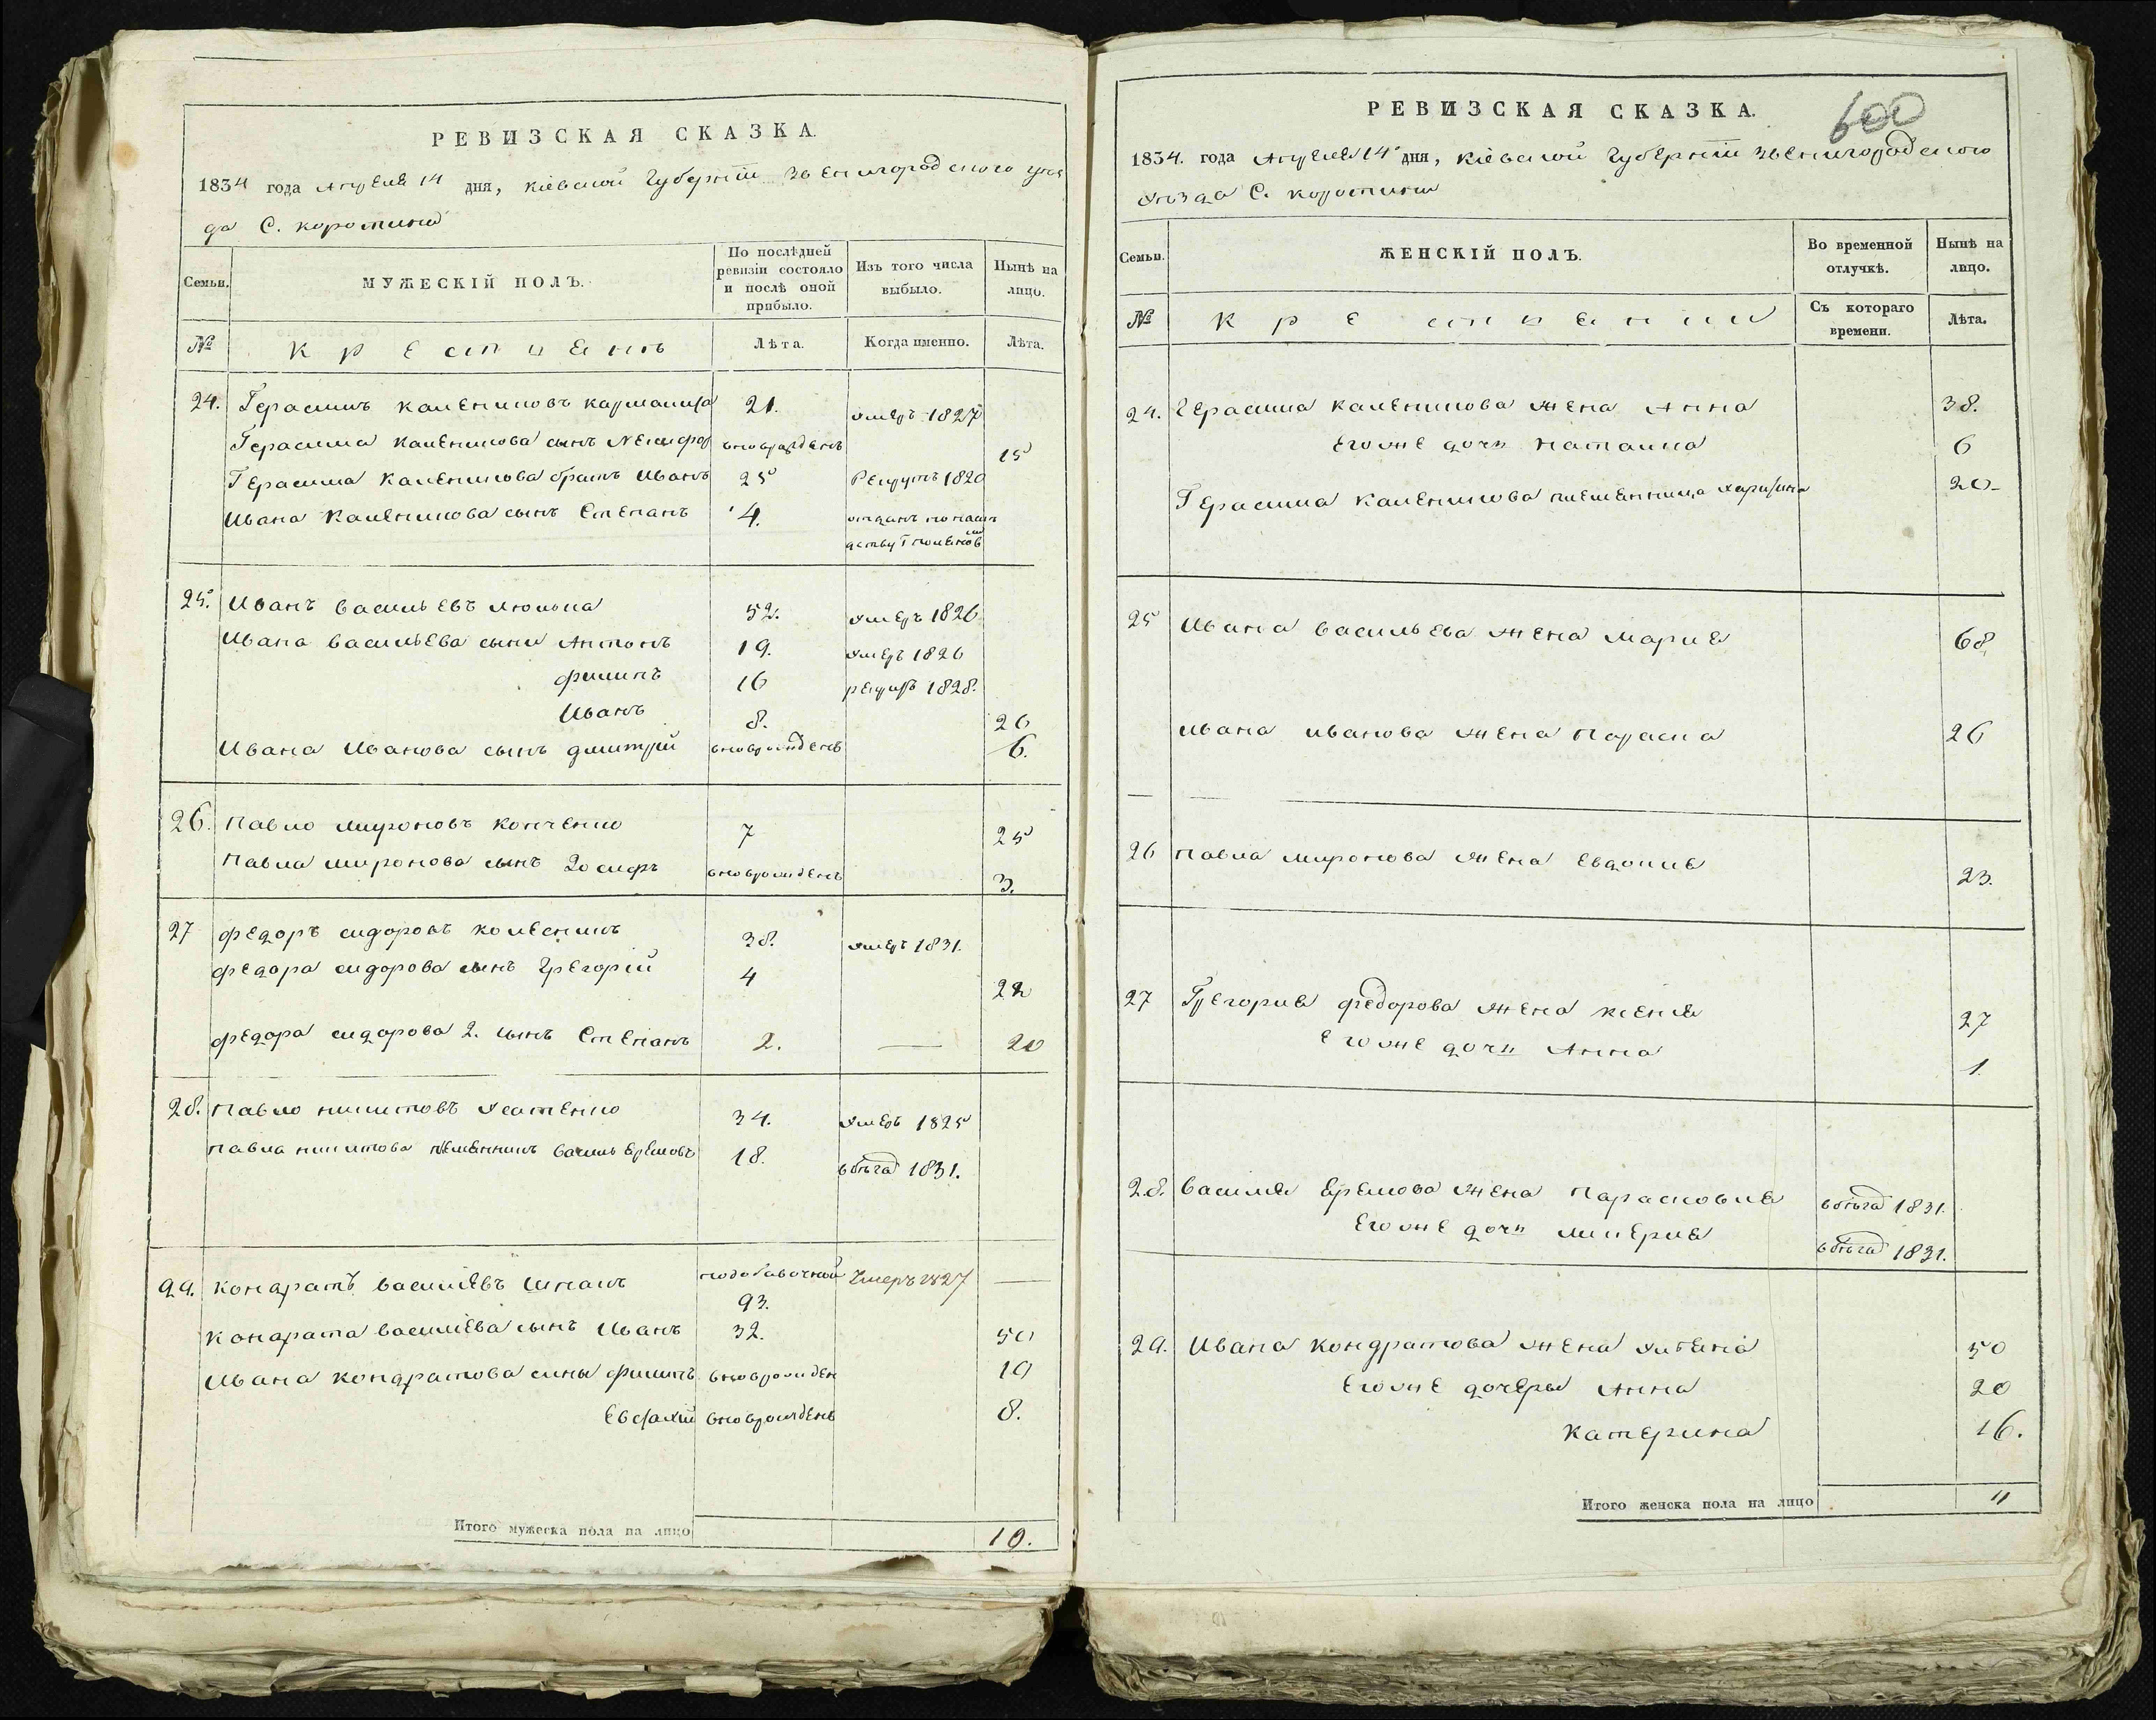 РЕВИЗСКАЯ СКАЗКА.
1834 года Апреля 14 дня, Кіевской Губерніи Звенигородского уез
да С. Коротина
Семьи.
МУЖЕСКІЙ ПОЛЪ.
По послѣдней ревизіи состояло и послѣ оной прибыло.
Изъ того числа выбыло.
Нынѣ на лицо.
№
Крестьянъ
Лѣта.
Когда именно.
Лѣта.
24. Герасимъ Калениковъ 21. умеръ 1827
Герасима Каленикова сынъ Никифор вновърожденъ 15
Герасима Каленикова братъ Иванъ 25 Рекрутъ 1820
Ивана Каленикова сынъ Степанъ 4. отданъ по
25. Иванъ Васильевъ Люлька 52. умеръ 1826
Ивана Васильева сыны Антонъ 19. умеръ 1826
Филипъ 16 рекрутъ 1828.
Иванъ 8. 26
Ивана Иванова сынъ Дмитрій вновърожденъ 6.
26. Павло Мироновъ Конченко 7 25
Павла Миронова сынъ Іосифъ вновърожденъ 3.
27 Федоръ Сидоровъ Колесникъ 38. умеръ 1831.
Федора Сидорова сынъ Грегорій 4 22
Федора Сидорова 2. сынъ Степанъ 2. — 20
28. Павло Никитовъ Усатенко 34. умеръ 1825
Павла Никитова племенникъ Василь Еремовъ 18. вбѣгах 1831.
29. Кондратъ Василіевъ Шпакъ подобавочной 93. Умеръ 1827 —
Кондрата Василіева сынъ Иванъ 32. 50
Ивана Кондратова сины Филипъ вновърожден 19
Евстахій вновърожденъ 8.
Итого мужеска пола на лицо 10.
РЕВИЗСКАЯ СКАЗКА.
600
1834. года Апреля 14 дня, Кіевской Губерніи Звенигородского
уѣзда С. Коротина
Семьи.
ЖЕНСКІЙ ПОЛЪ.
Во временной отлучкѣ.
Нынѣ на лицо.
№
Крестьянки
Съ котораго времени.
Лѣта.
24. Герасима Каленикова жена Анна 38.
Его же дочь Наталка 6
Герасима Каленикова племенница Харитина 20
25 Ивана Васильева жена Марие 68.
Ивана Иванова жена Параска 26
26 Павла Миронова жена Евдокие 23.
27 Грегорие Федорова жена Ксение 27
Его же дочь Анна 1
28. Василие Еремова жена Парасковие вбѣгах 1831.
Его же дочь Гликерие вбѣгах 1831.
29. Ивана Кондратова жена Улияна 50
Его же дочеры Анна 20
Катерина 16.
Итого женска пола на лицо 11